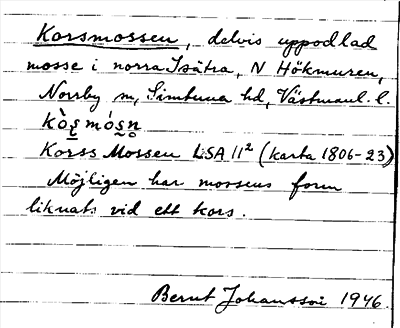 Korsmossen, delvis uppodlad
mosse i norra Isätra, N Hökmuren,
Norrby sn, Simtuna hd, Västmanl. l.
kòʂmósn̥
Korss Mossen LSA 11² (karta 1806-23)
Möjligen har mossens form
liknats vid ett kors.
Bernt Johansson 1946.